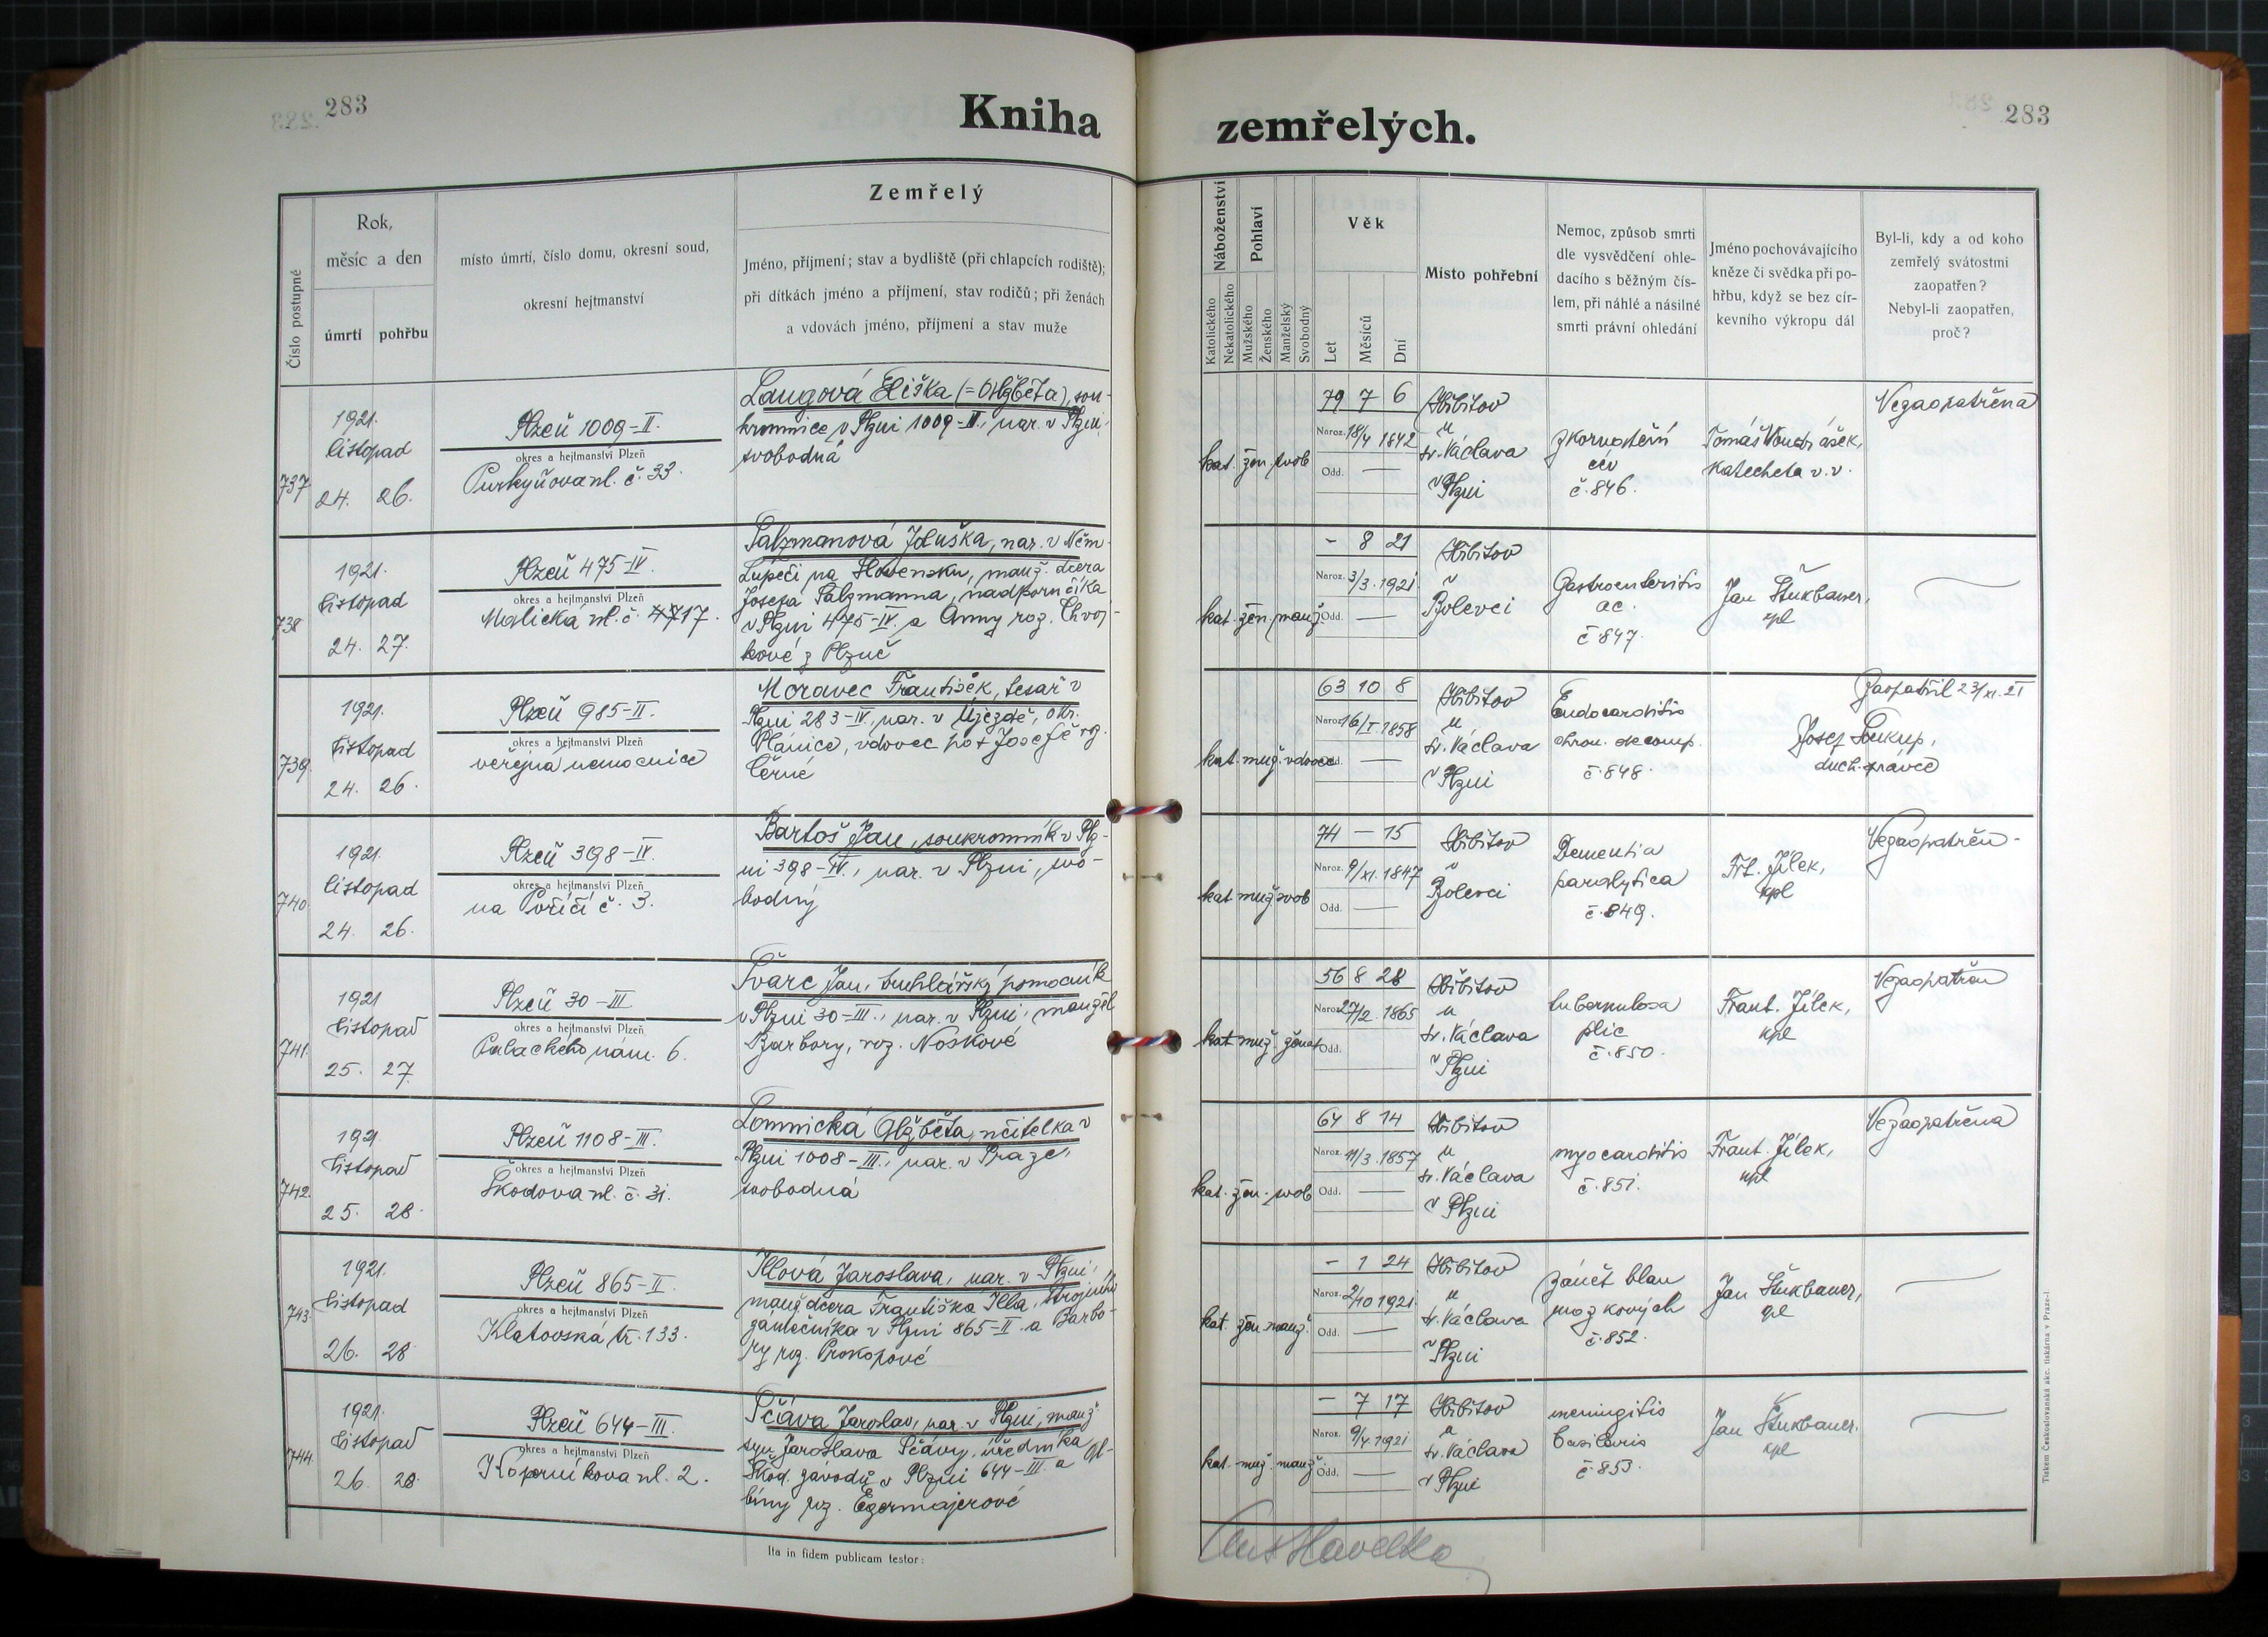 283
Kniha
zemřelých.
283
Číslo postupné
Rok,
měsíc a den
úmrtí
pohřbu
místo úmrtí, číslo domu, okresní soud,
okresní hejtmanství
Zemřelý
Jméno, příjmení; stav a bydliště (při chlapcích rodiště);
při dítkách jméno a příjmení, stav rodičů; při ženách
a vdovách jméno, příjmení a stav muže
Náboženství
Katolického
Nekatolického
Pohlaví
Mužského
Ženského
Manželský
Svobodný
Věk
Let
Měsíců
Dní
Místo pohřební
Nemoc, způsob smrti
dle vysvědčení ohle-
dacího s běžným čís-
lem, při náhlé a násilné
smrti právní ohledání
Jméno pochovávajícího
kněze či svědka při po-
hřbu, když se bez cír-
kevního výkropu dál
Byl-li, kdy a od koho
zemřelý svátostmi
zaopatřen?
Nebyl-li zaopatřen,
proč?
737
1921.
listopad
24. 26.
Plzeň 1009-II.
okres a hejtmanství Plzeň
Purkyňova ul. č. 33.
Langová Eliška (= Alžběta), sou-
kromnice v Plzni 1009-II., nar. v Plzni,
svobodná
kat. žen. svob
79 7 6
Naroz. 18/4 1842
Odd. —
Hřbitov
u
sv. Václava
v Plzni
zkornatění
cév
č. 846.
Tomáš Vondrášek,
katecheta v. v.
Nezaopatřena
738
1921.
listopad
24. 27.
Plzeň 475-IV.
okres a hejtmanství Plzeň
Malická ul. č. 17.
Salzmanová Iduška, nar. v Něm.
Lupči na Slovensku, manž. dcera
Josefa Salzmanna, nadporučíka
v Plzni 475-IV. a Anny roz. Chvoj-
kové z Plzně
kat. žen. manž
- 8 21
Naroz. 3/3. 1921.
Odd. —
Hřbitov
v
Bolevci
Gastroenteritis
ac.
č. 847.
Jan Štukbauer,
kpl
739.
1921.
listopad
24. 26.
Plzeň 985-II.
okres a hejtmanství Plzeň
veřejná nemocnice
Moravec František, tesař v
Plzni 283-IV., nar. v Újezdě, okr.
Plánice, vdovec po + Josefě roz.
Černé
kat. muž. vdovec
63 10 8
Naroz. 16/I. 1858
Odd. —
Hřbitov
u
sv. Václava
v Plzni
Endocarditis
chron. decomp.
č. 848.
Zaopatřil 23/XI. 21
Josef Soukup,
duch. správce
740.
1921.
listopad
24. 26.
Plzeň 398-IV.
okres a hejtmanství Plzeň
na Poříčí č. 3.
Bartoš Jan, soukromník v Plz-
ni 398-IV., nar. v Plzni, svo-
bodný
kat. muž. svob
74 — 15
Naroz. 9/XI. 1847
Odd. —
Hřbitov
v
Bolevci
Dementia
paralytica
č. 849.
Frt. Jílek,
kpl
Nezaopatřen.
741.
1921
listopad
25. 27.
Plzeň 30-III
okres a hejtmanství Plzeň
Palackého nám. 6.
Švarc Jan, truhlářský pomocník
v Plzni 30-III., nar. v Plzni, manžel
Barbory, roz. Noskové
kat. muž. ženat
56 8 28
Naroz. 27/2. 1865
Odd. —
Hřbitov
u
sv. Václava
v Plzni
tuberkulosa
plic
č. 850.
Frant. Jílek,
kpl
Nezaopatřen
742.
1921.
listopad
25. 28.
Plzeň 1108-III.
okres a hejtmanství Plzeň
Škodova ul. č. 31.
Lomnická Alžběta, učitelka v
Plzni 1008-III., nar. v Praze,
svobodná
kat. žen. svob
64 8 14
Naroz. 11/3. 1857
Odd. —
Hřbitov
u
sv. Václava
v Plzni
myocarditis
č. 851.
Frant. Jílek,
kpl
Nezaopatřena
743.
1921.
listopad
26. 28
Plzeň 865-II.
okres a hejtmanství Plzeň
Klatovská tř. 133.
Illová Jaroslava, nar. v Plzni,
manž. dcera Františka Illa, strojního
zámečníka v Plzni 865-II. a Barbo-
ry roz. Prokopové
kat. žen. manž
- 1 24
Naroz. 2/10 1921.
Odd. —
Hřbitov
u
sv. Václava
v Plzni
zánět blan
mozkových
č. 852.
Jan Štukbauer,
kpl
744.
1921.
listopad
26. 28.
Plzeň 644-III.
okres a hejtmanství Plzeň
Koperníkova ul. 2.
Ščáva Jaroslav, nar. v Plzni, manž.
syn Jaroslava Ščávy, úředníka
Škod. závodů v Plzni 644-III. a Al-
biny roz. Egermajerové
kat. muž. manž
- 7 17
Naroz. 9/4. 1921
Odd. —
Hřbitov
u
sv. Václava
v Plzni
meningitis
basilaris
č. 853.
Jan Štukbauer.
kpl
Ita in fidem publicam testor:
Havelka
Tiskem Československá akc. tiskárna v Praze-I